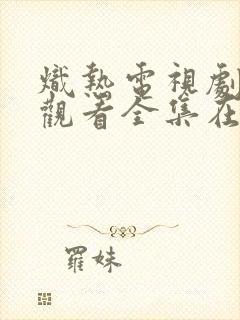 熾熱電視劇
觀看全集在
羅妹